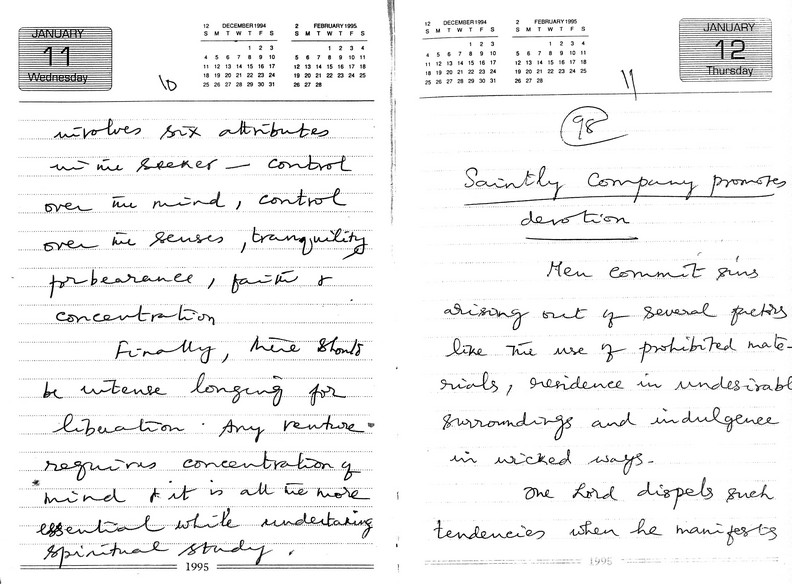 JANUARY
11
Wednesday
12 DECEMBER 1994
S M T W T F S
1 2 3
4 5 6 7 8 9 10
11 12 13 14 15 16 17
18 19 20 21 22 23 24
25 26 27 28 29 30 31
2 FEBRUARY 1995
S M T W T F S
1 2 3 4
5 6 7 8 9 10 11
12 13 14 15 16 17 18
19 20 21 22 23 24 25
26 27 28
10
involves six attributes
in the seeker — control
over the mind, control
over the senses, tranquility
forbearance, faith &
concentration
Finally, there should
be intense longing for
liberation. Any venture
requires concentration of
mind & it is all the more
essential while undertaking
spiritual study.
1995
12 DECEMBER 1994
S M T W T F S
1 2 3
4 5 6 7 8 9 10
11 12 13 14 15 16 17
18 19 20 21 22 23 24
25 26 27 28 29 30 31
2 FEBRUARY 1995
S M T W T F S
1 2 3 4
5 6 7 8 9 10 11
12 13 14 15 16 17 18
19 20 21 22 23 24 25
26 27 28
JANUARY
12
Thursday
11
98
Saintly Company promotes
devotion
Men commit sins
arising out of several factors
like the use of prohibited mate-
rials, residence in undesirabl
surroundings and indulgence
in wicked ways.
The Lord dispels such
tendencies when he manifests
1995